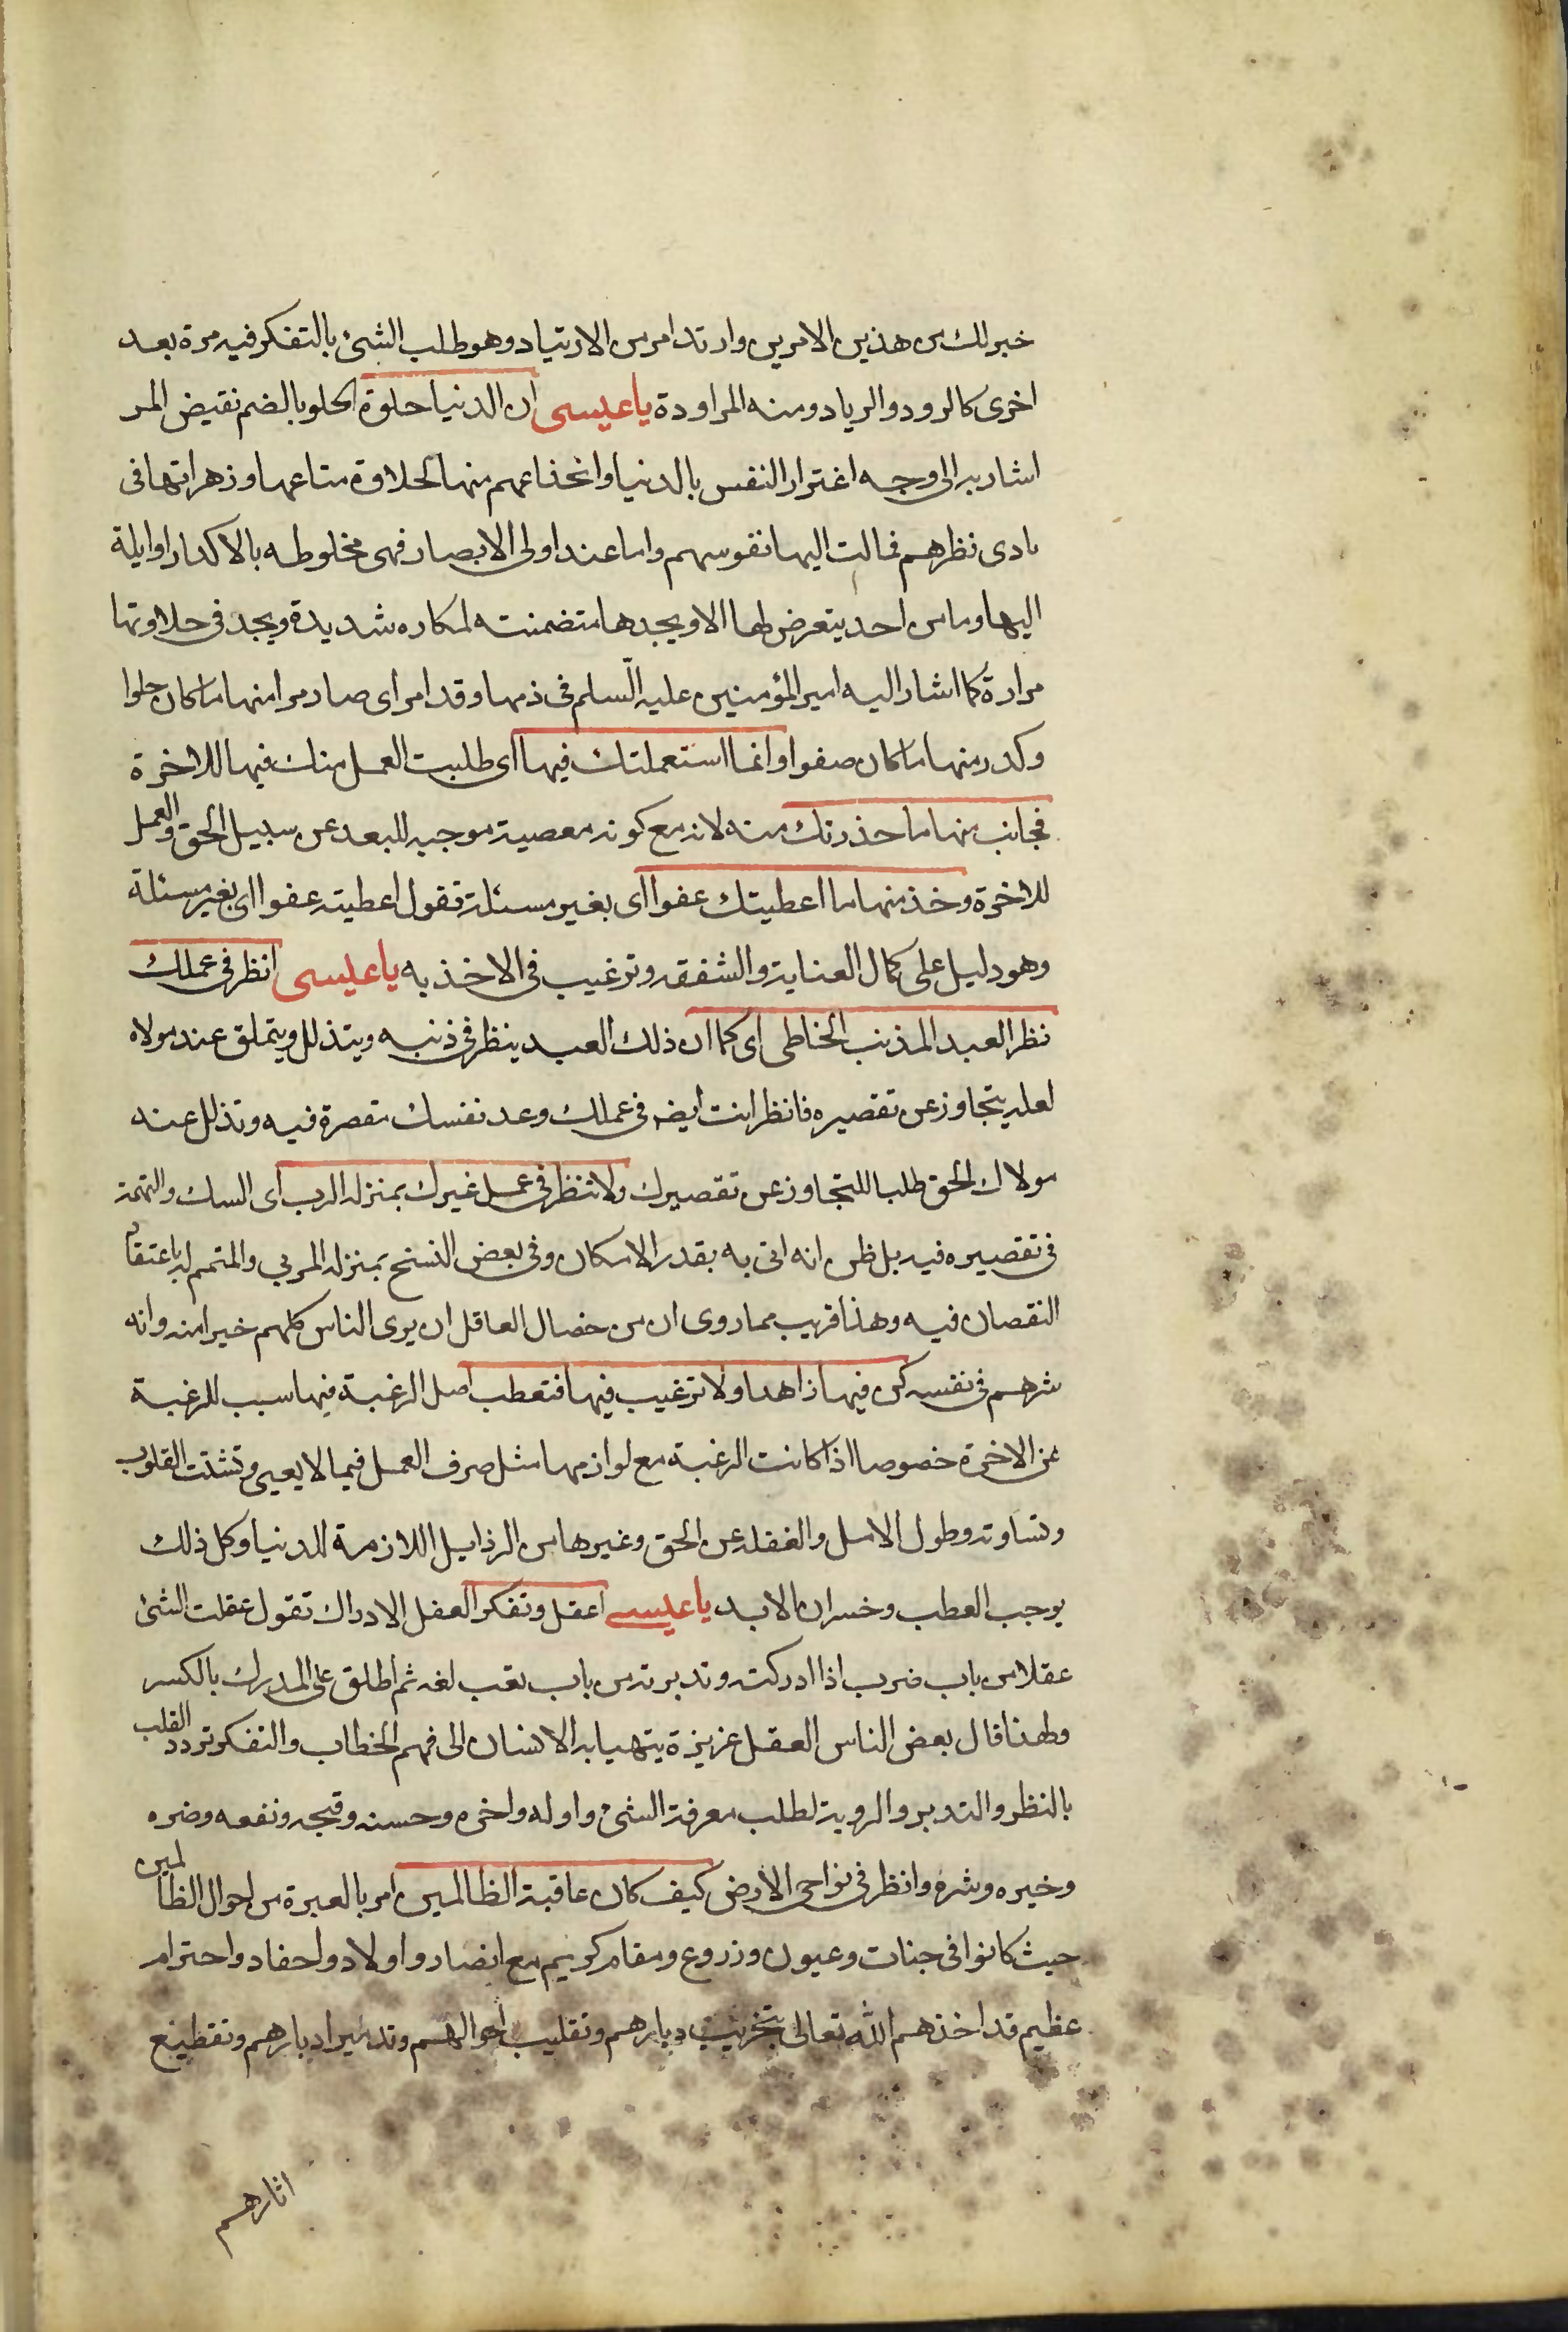 خير لك من هذين الامرين وارتد امر من الارتياد وهو طلب الشئ بالتفكر فيه مرة بعد
اخرى كالرود والرياد ومنه المراودة يا عيسى ان الدنيا حلوة الحلو بالضم نقيض المر
اشار به الى وجه اغترار النفس بالدنيا وانخذاعهم منها لحلاوة متاعها وزهراتها فى
بادى نظرهم فمالت اليها نفوسهم واما عند اولى الابصار فهى مخلوطه بالاكدار اوايلة
اليها وما من احد يتعرض لها الا ويجدها متضمنته لمكاره شديدة ويجد فى حلاوتها
مرارة كما اشار اليه امير المؤمنين عليه السّلم فى ذمها وقد امر اى صار مرا منها ما كان حلوا
وكدر منها ما كان صفوا وانما استعملتك فيها اى طلبت العمل منك فيها للاخرة
فجانب منها ما حذرتك منه لانه مع كونه معصية موجبه للبعد عن سبيل الحق والعمل
للاخرة وخذ منها ما اعطيتك عفوا اى بغير مسئلة تقول اعطيته عفوا اى بغير مسئلة
وهو دليل على كمال العناية والشفقه وترغيب فى الاخذ به يا عيسى انظر فى عملك
نظر العبد المذنب الخاطى اى كما ان ذلك العبد ينظر فى ذنبه ويتذلل ويتملق عند مولاه
لعله يتجاوز عن تقصيره فانظر انت ايضا فى عملك وعد نفسك مقصرة فيه وتذلل عند
مولاك الحق طلبا للتجاوز عن تقصيرك ولا تنظر فى عمل غيرك بمنزله الرب اى السك والتهمة
فى تقصيره فيه بل ظن انه اتى به بقدر الامكان وفى بعض النسخ بمنزله المربي والمتمم له باعتقاد
النقصان فيه وهذا قريب مما روى ان من خصال العاقل ان يرى الناس كلهم خيرا منه وانه
شرهم فى نفسه كن فيها زاهدا ولا ترغب فيها فتعطب اصل الرغبة فيها سبب للرغبة
عن الاخرة خصوصا اذا كانت الرغبة مع لوازمها مثل صرف العمل فيما لا يعنى وتشتت القلوب
وقساوته وطول الامل والغفله عن الحق وغيرها من الرذايل اللازمة للدنيا وكل ذلك
يوجب العطب وخسران الابد يا عيسى اعقل وتفكر العقل الادراك تقول عقلت الشئ
عقلا من باب ضرب اذا ادركته وتدبرته من باب تعب لغه ثم اطلق على المدرك بالكسر
ولهذا قال بعض الناس العقل غريزة يتهيا به الانسان الى فهم الخطاب والتفكر تردد القلب
بالنظر والتدبر والروية لطلب معرفة الشئ واوله واخره وحسنه وقبحه ونفعه وضره
وخيره وشره وانظر فى نواحى الارض كيف كان عاقبة الظالمين امر بالعبرة من احوال الظالمين
حيث كانوا فى جنات وعيون وزروع ومقام كريم مع انصار واولاد واحفاد واحترام
عظيم قد اخذهم الله تعالى بتخريب ديارهم وتقليب احوالهم وتدمير ادبارهم وتقطيع
اثارهم